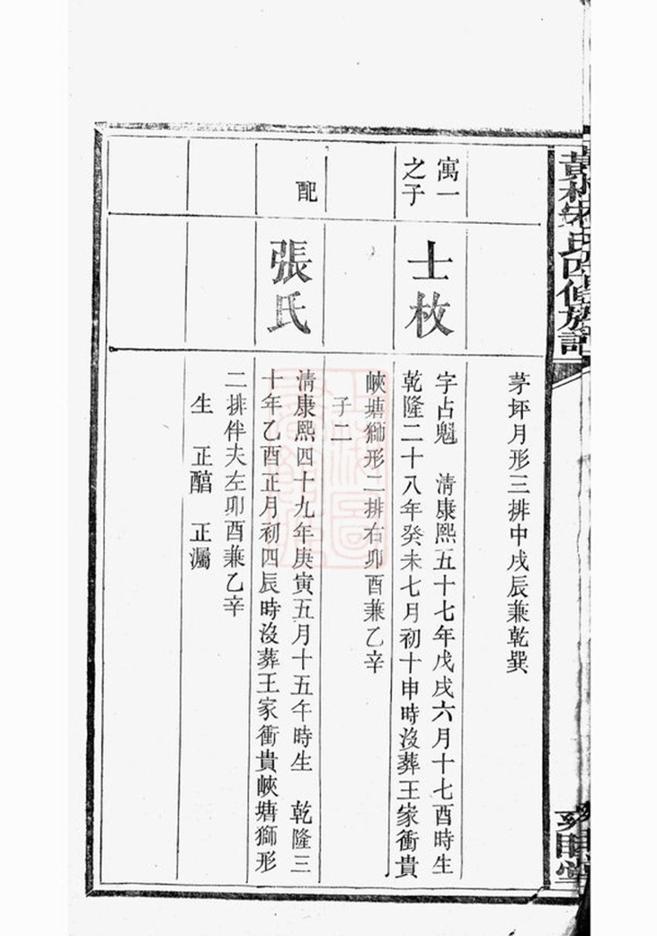 茅坪月形三排中戌辰兼乾巽
寓一
之子
士枚
字占魁 清康熙五十七年戊戌六月十七酉時生
乾隆二十八年癸未七月初十申時沒葬王家衝貴
峽塘獅形二排右卯酉兼乙辛
子二
配
張氏
清康熙四十九年庚寅五月十五午時生 乾隆三
十年乙酉正月初四辰時沒葬王家衝貴峽塘獅形
二排伴夫左卯酉兼乙辛
生 正醕 正灟
氏四修族記
睦堂